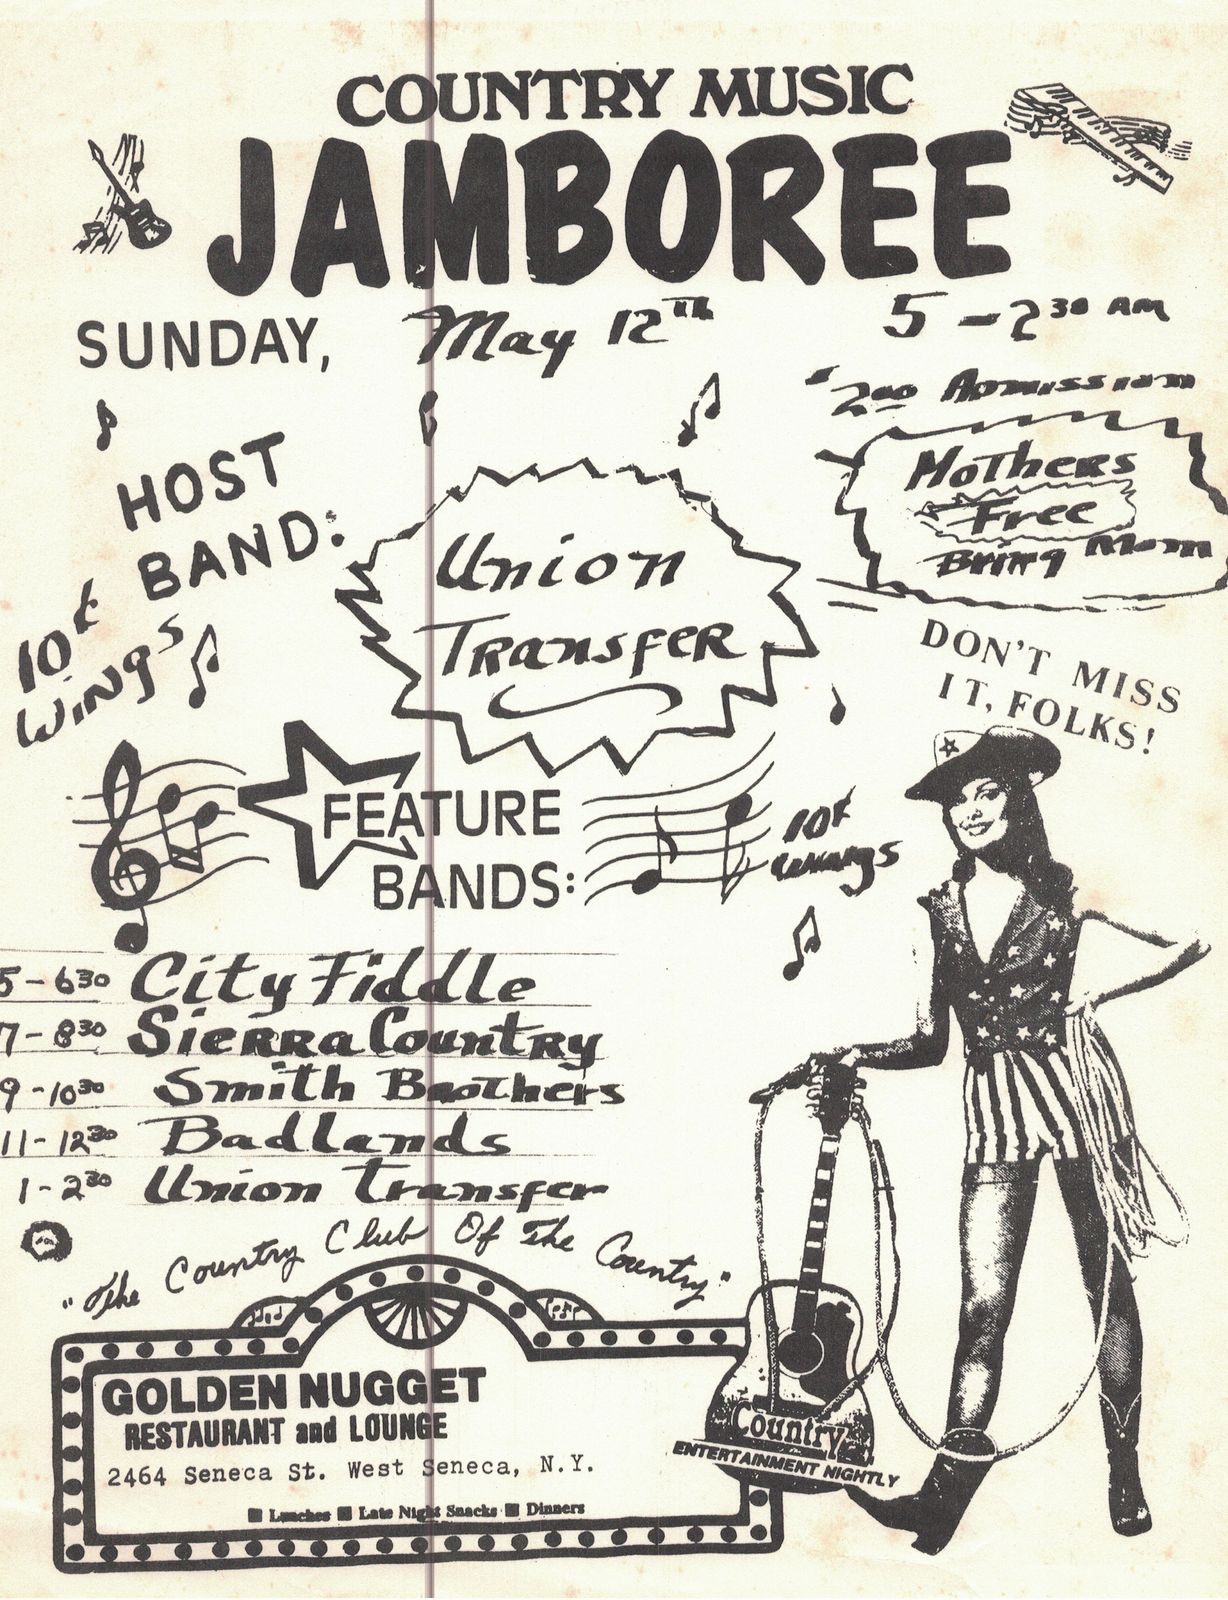 COUNTRY MUSIC
JAMBOREE
SUNDAY, May 12th
5 - 2 30 AM
$2.00 Admission
Mothers
Free
Bring Mom
HOST
BAND:
Union
Transfer
10¢
Wings
DON'T MISS
IT, FOLKS!
FEATURE
BANDS:
10¢
Wings
5 - 6 30 City Fiddle
7 - 8 30 Sierra Country
9 - 10 30 Smith Brothers
11 - 12 30 Badlands
1 - 2 30 Union Transfer
"The Country Club Of The Country"
GOLDEN NUGGET
RESTAURANT and LOUNGE
2464 Seneca St. West Seneca, N.Y.
■ Lunches ■ Late Night Snacks ■ Dinners
Country
ENTERTAINMENT NIGHTLY